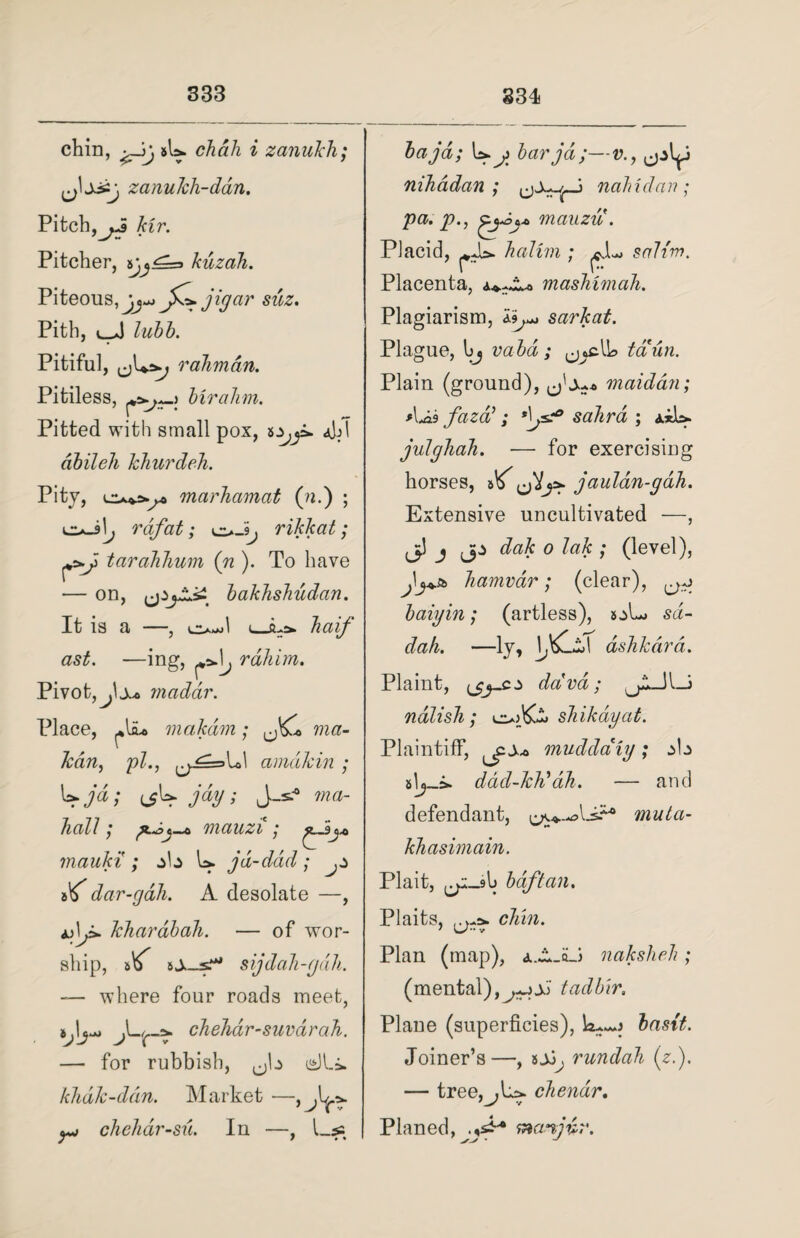 333
chin, چاه زنخ chăh i zanukh;
زنخدان zanukh-dán.
Pitch, قیر kír.
Pitcher, کوزه kúzah.
Piteous, جگر سوز jigar súz.
Pith, لب lubb.
Pitiful, رحمان rahmán.
Pitiless, بیرحم bírahm.
Pitted with small pox, آبله خورده
ábileh khurdeh.
Pity, مرحمت marhamat (n.) ;
رافت ráfat; رقت rikkat;
ترحم tarahhum (n ). To have
— on, بخشودن bakhshúdan.
It is a —, حیف است haif
ast. —ing, راحم ráhim.
Pivot, مدار maddár.
Place, مقام makám; مکان ma-
kán, pl., اماکن amákin ;
جا já; جای jáy; محل ma-
hall; موضع mauzí‘;  موقع
maukí‘; جا داد já-dád; در
گاه dar-gáh. A desolate —,
خرابه kharábah. — of wor-
ship, سجده گاه sijdah-gáh.
— where four roads meet,
چهار سواره chehár-suvárah.
— for rubbish, خاك دان
khák-dán. Market —, چهار
سو chehár-sú. In —, بجا
334
bajá; برجا bar já;—v., نهادن
nihádan ; نهیدن nahídan;
pa. p., موضوع mauzú‘.
Placid, حلیم halím ; سلیم salím.
Placenta, مشیمه mashímah.
Plagiarism, سرقة sarkat.
Plague, وبا vabá ; طاعون tá‘ún.
Plain (ground), میدان maidán;
فضاء fazá’; صحراء sahrá ; جلغه
julghah. — for exercising
horses, جولان گاه jaulán-gáh.
Extensive uncultivated —,
دق و لق dak o lak ; (level),
هموار hamvár ; (clear), بین
baiyin; (artless), ساده sá-
dah. —ly, آشکارا áshkárá.
Plaint, دعوی da‘vá; نالش
nálish; شکایت shikáyat.
Plaintiff, مدعی mudda‘iy ; داد
خواه dád-kh’áh. — and
defendant, متخاصمین muta-
khasimain.
Plait, بافتن báftan.
Plaits, چین chín.
Plan (map), نقشه naksheh;
(mental), تدبیر tadbír.
Plane (superficies), بسیط basít.
Joiner’s —, رنده rundah (z.).
— tree, چنار chenár.
Planed, منجور manjúr.